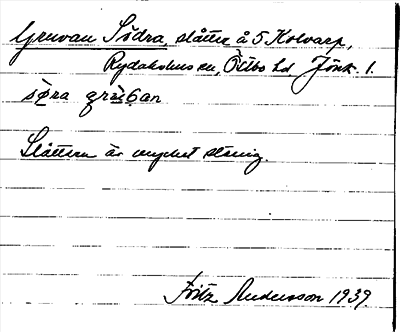 Gruvan Södra, slåtter å 5 Kolvarp,
Rydaholms sn, Östbo hd Jönk. l.
Slåttern är mycket stenig.
Fritz Andersson 1939.